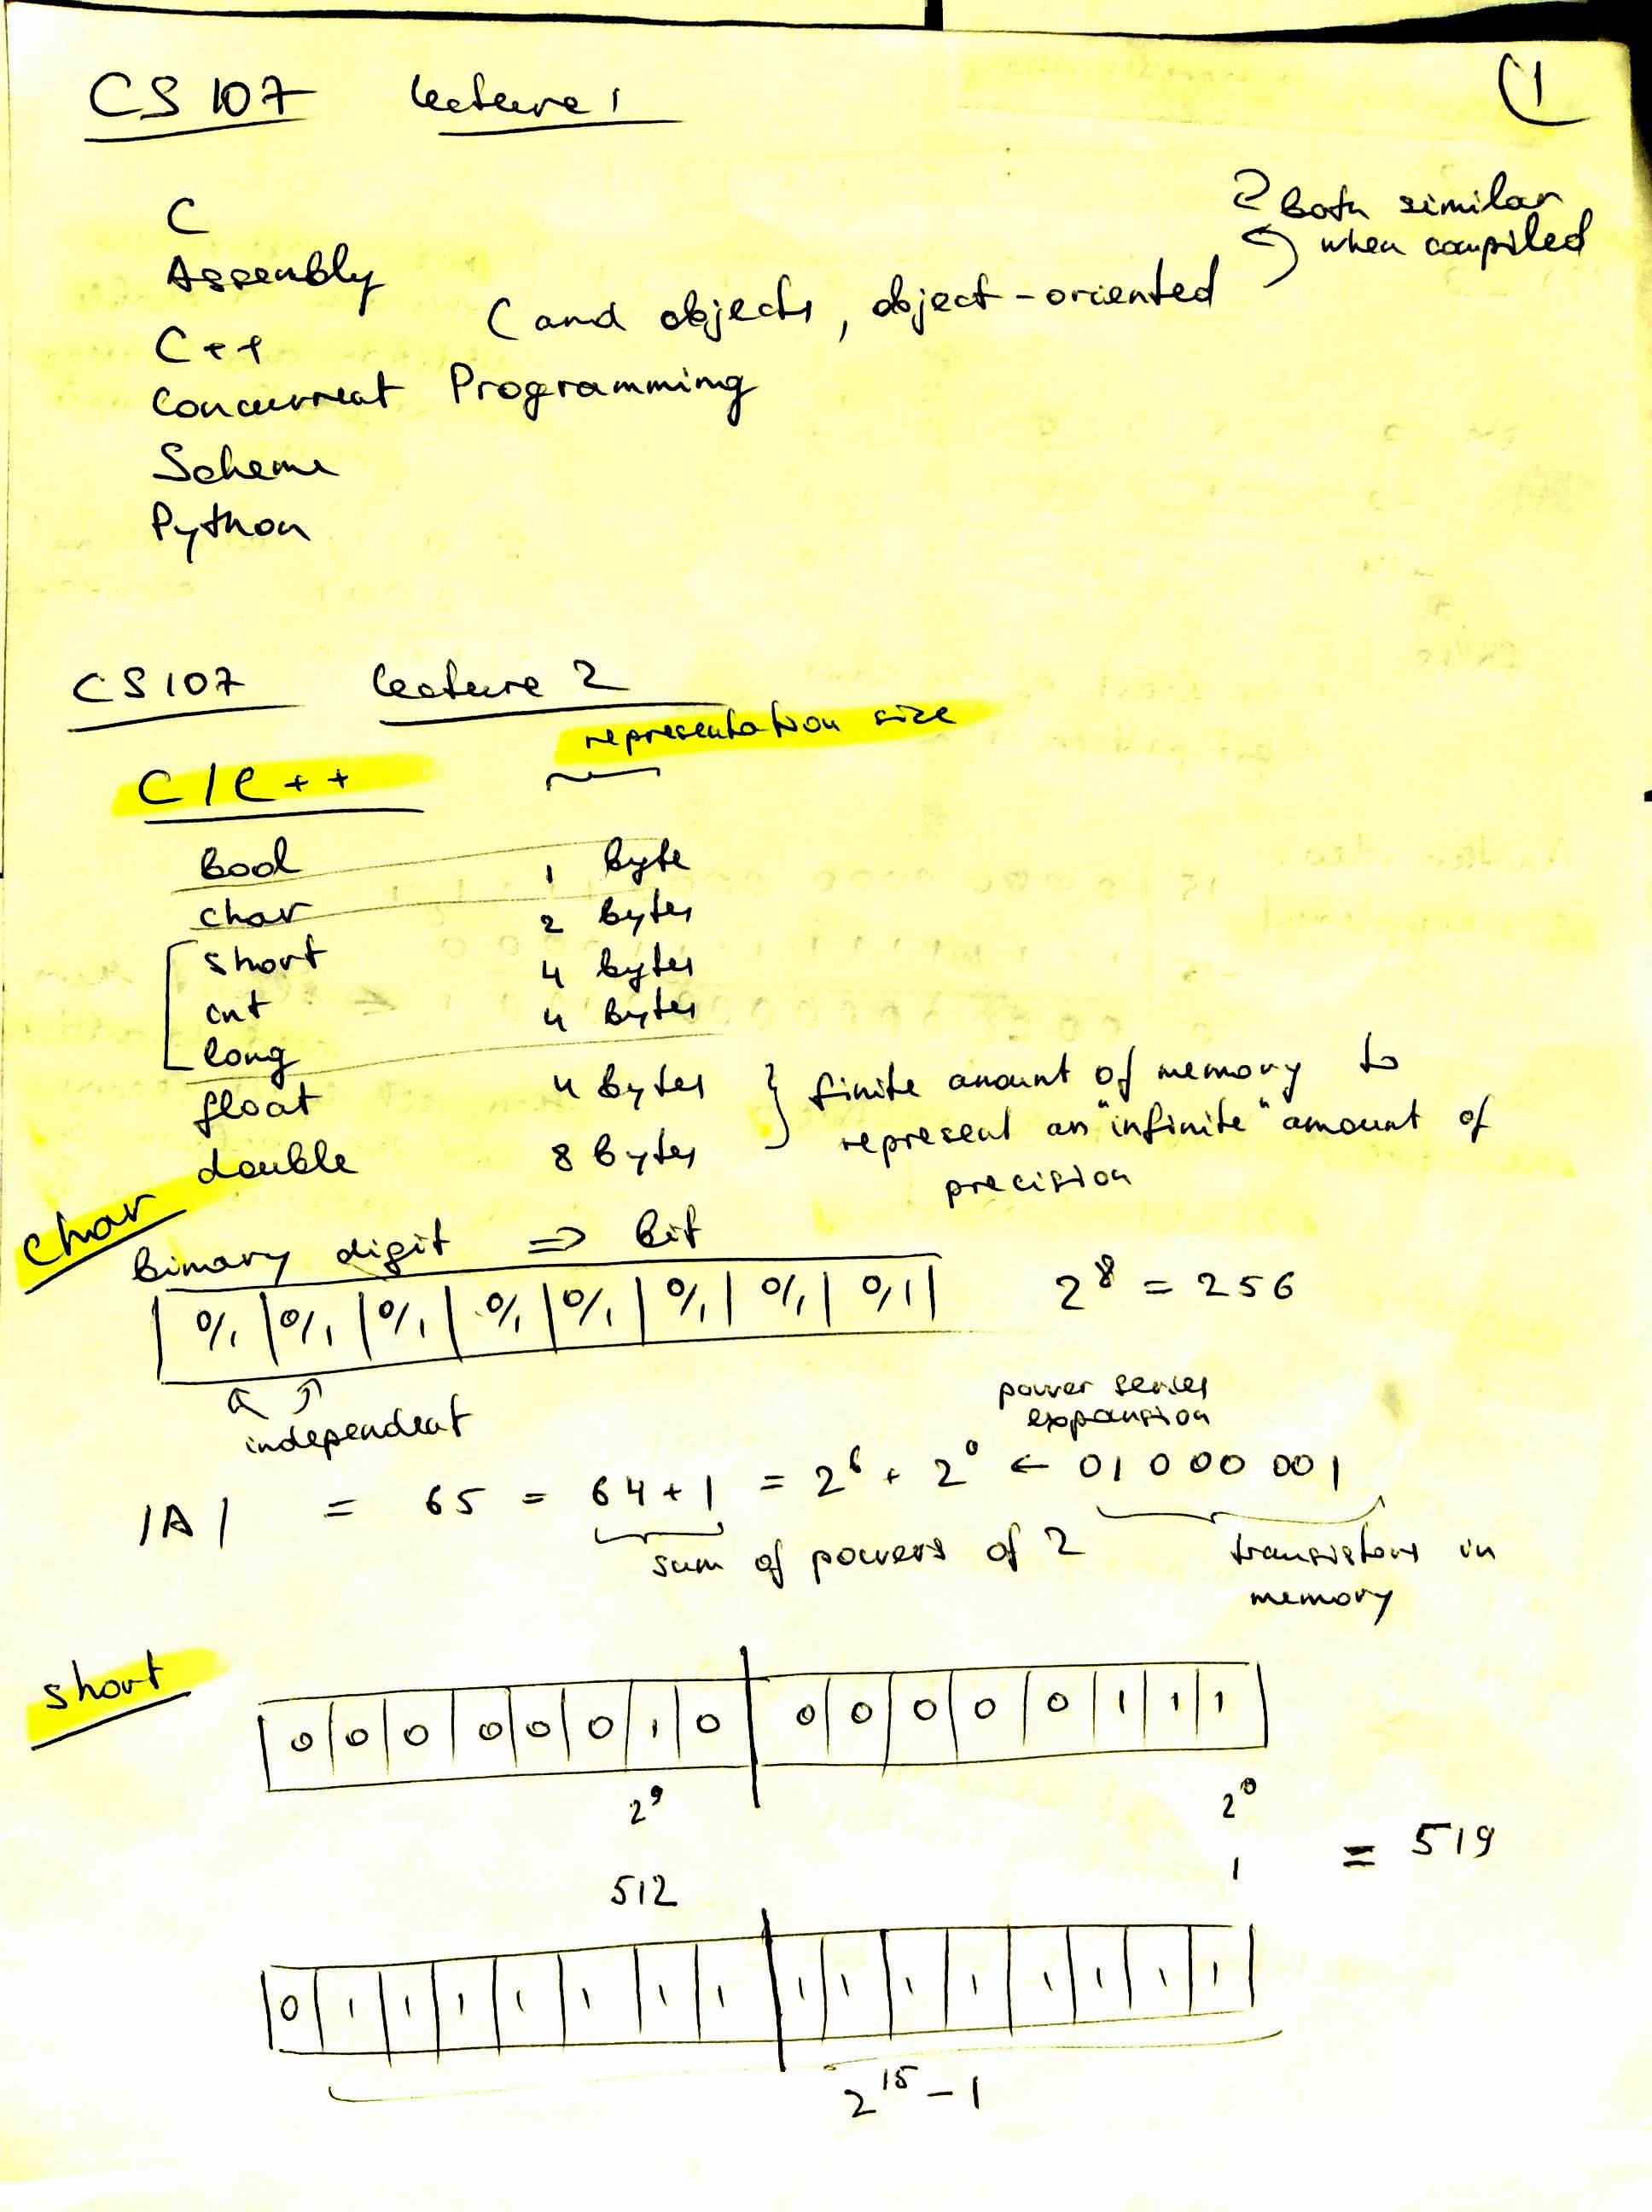 CS 107 Lecture 1
(1
C
Assembly
C++ (and objects, object-oriented
2 Both similar
when compiled
Concurrent Programming
Scheme
Python
CS107 Lecture 2
C/C++ representation size
Bool 1 byte
char 2 bytes
short 4 bytes
int 4 bytes
long
float 4 bytes } finite amount of memory to
double 8 bytes represent an "infinite" amount of
precision
char
Binary digit ⇒ Bit
0/1 | 0/1 | 0/1 | 0/1 | 0/1 | 0/1 | 0/1 | 0/1 2^8 = 256
independent
power series
expansion
'A' = 65 = 64 + 1 = 2^6 + 2^0 ← 01000001
sum of powers of 2 transistors in
memory
short
0 0 0 0 0 0 1 0 | 0 0 0 0 0 1 1 1
2^9 2^0
512 1 = 519
0 1 1 1 1 1 1 1 | 1 1 1 1 1 1 1 1
2^15 - 1